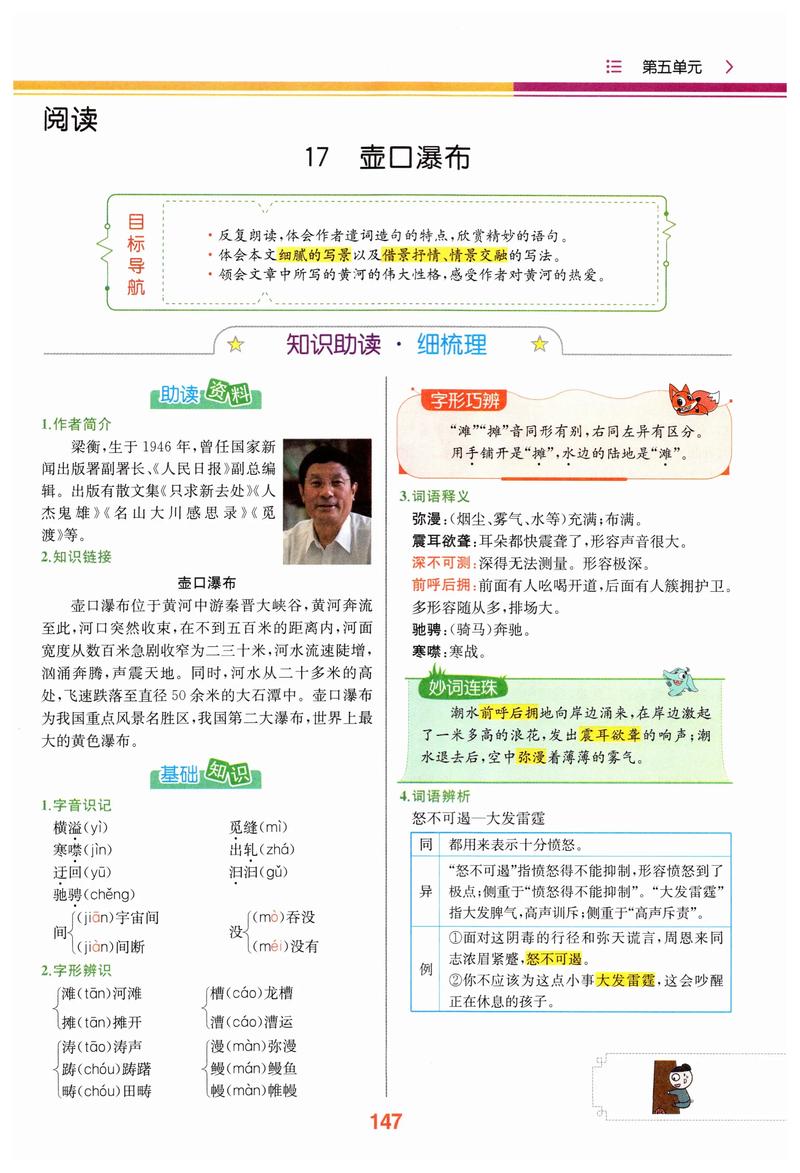 第五单元
阅读
17 壶口瀑布
目标导航
·反复朗读,体会作者遣词造句的特点,欣赏精妙的语句。
·体会本文细腻的写景以及借景抒情、情景交融的写法。
·领会文章中所写的黄河的伟大性格,感受作者对黄河的热爱。
知识助读·细梳理
助读资料
1.作者简介
梁衡,生于1946年,曾任国家新
闻出版署副署长、《人民日报》副总编
辑。出版有散文集《只求新去处》《人
杰鬼雄》《名山大川感思录》《觅
渡》等。
2.知识链接
壶口瀑布
壶口瀑布位于黄河中游秦晋大峡谷,黄河奔流
至此,河口突然收束,在不到五百米的距离内,河面
宽度从数百米急剧收窄为二三十米,河水流速陡增,
汹涌奔腾,声震天地。同时,河水从二十多米的高
处,飞速跌落至直径50余米的大石潭中。壶口瀑布
为我国重点风景名胜区,我国第二大瀑布,世界上最
大的黄色瀑布。
基础知识
1.字音识记
横溢(yì) 觅缝(mì)
寒噤(jìn) 出轧(zhá)
迂回(yū) 汩汩(gǔ)
驰骋(chěng)
间 (jiān)宇宙间 没 (mò)吞没
(jiàn)间断 (méi)没有
2.字形辨识
滩(tān)河滩 槽(cáo)龙槽
摊(tān)摊开 漕(cáo)漕运
涛(tāo)涛声 漫(màn)弥漫
踌(chóu)踌躇 鳗(mán)鳗鱼
畴(chóu)田畴 幔(màn)帷幔
字形巧辨
“滩”“摊”音同形有别,右同左异有区分。
用手铺开是“摊”,水边的陆地是“滩”。
3.词语释义
弥漫:(烟尘、雾气、水等)充满;布满。
震耳欲聋:耳朵都快震聋了,形容声音很大。
深不可测:深得无法测量。形容极深。
前呼后拥:前面有人吆喝开道,后面有人簇拥护卫。
多形容随从多,排场大。
驰骋:(骑马)奔驰。
寒噤:寒战。
妙词连珠
潮水前呼后拥地向岸边涌来,在岸边激起
了一米多高的浪花,发出震耳欲聋的响声;潮
水退去后,空中弥漫着薄薄的雾气。
4.词语辨析
怒不可遏—大发雷霆
同 都用来表示十分愤怒。
异 “怒不可遏”指愤怒得不能抑制,形容愤怒到了
极点;侧重于“愤怒得不能抑制”。“大发雷霆”
指大发脾气,高声训斥;侧重于“高声斥责”。
例 ①面对这阴毒的行径和弥天谎言,周恩来同
志浓眉紧蹙,怒不可遏。
②你不应该为这点小事大发雷霆,这会吵醒
正在休息的孩子。
147